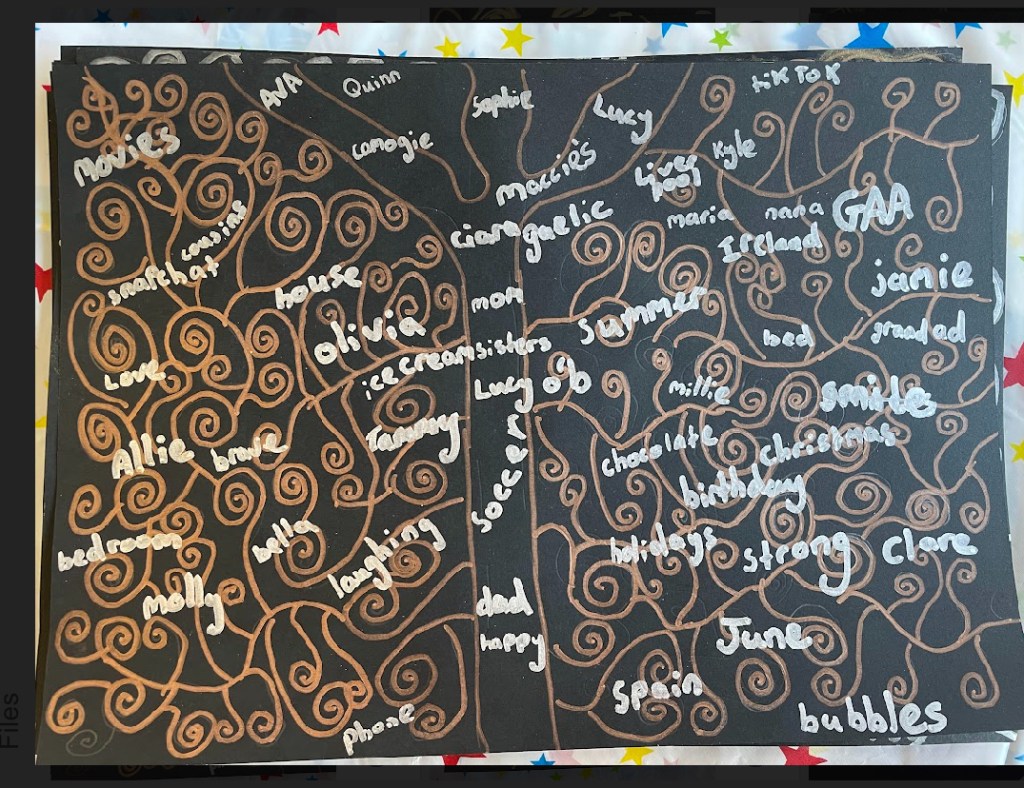 AVA
Quinn
Sophie
Lucy
tik tok
Movies
camogie
Maccies
Liver
pool
Kyle
cousins
ciara
gaelic
maria
nana
GAA
Ireland
snapchat
house
mom
summer
jamie
olivia
ice cream
sisters
bed
grandad
Love
Lucy o'b
millie
smile
Allie
brave
Tammy
soccer
chocolate
christmas
birthday
bedroom
bella
laughing
holidays
strong
Clare
molly
dad
happy
June
phone
spain
bubbles
Files